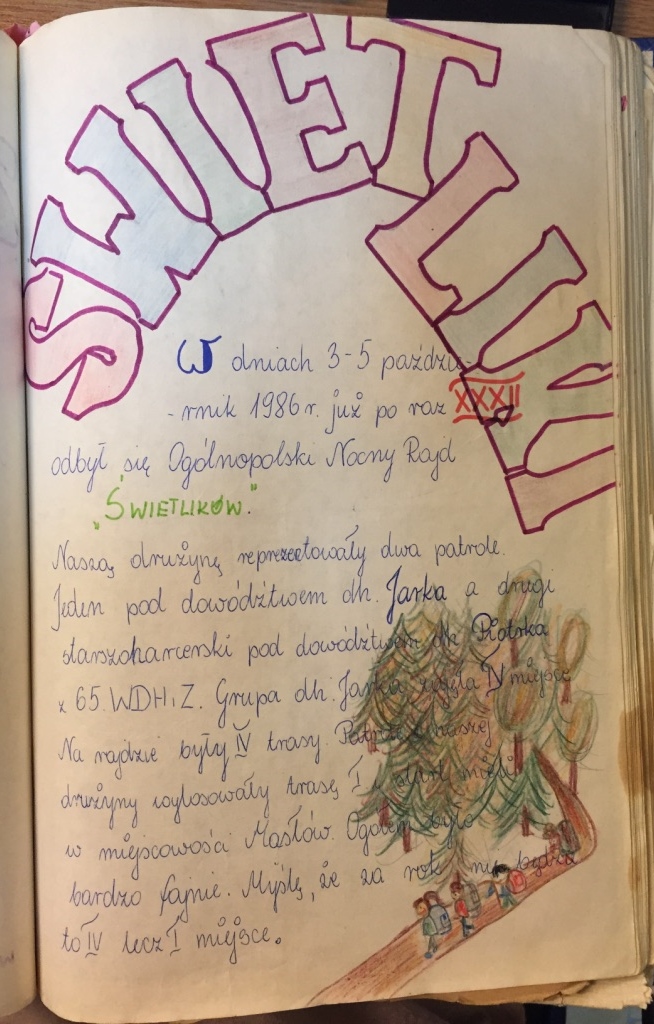 ŚWIETLIKI
W dniach 3-5 paździe-
-rnik 1986 r. już po raz XXXII
odbył się Ogólnopolski Nocny Rajd
"ŚWIETLIKÓW."
Naszą drużynę reprezetowały dwa patrole.
Jeden pod dowództwem dh. Jarka a drugi
starszoharcerski pod dowództwem dh Piotrka
z 65. WDH i Z. Grupa dh. Jarka zajęła IV miejsce
Na rajdzie były IV trasy. Patrole z naszej
drużyny wylosowały trasę I, start mieli
w miejscowości Masłów. Ogólem było
bardzo fajnie. Myślę, że za rok nie będzie
to IV lecz I miejsce.